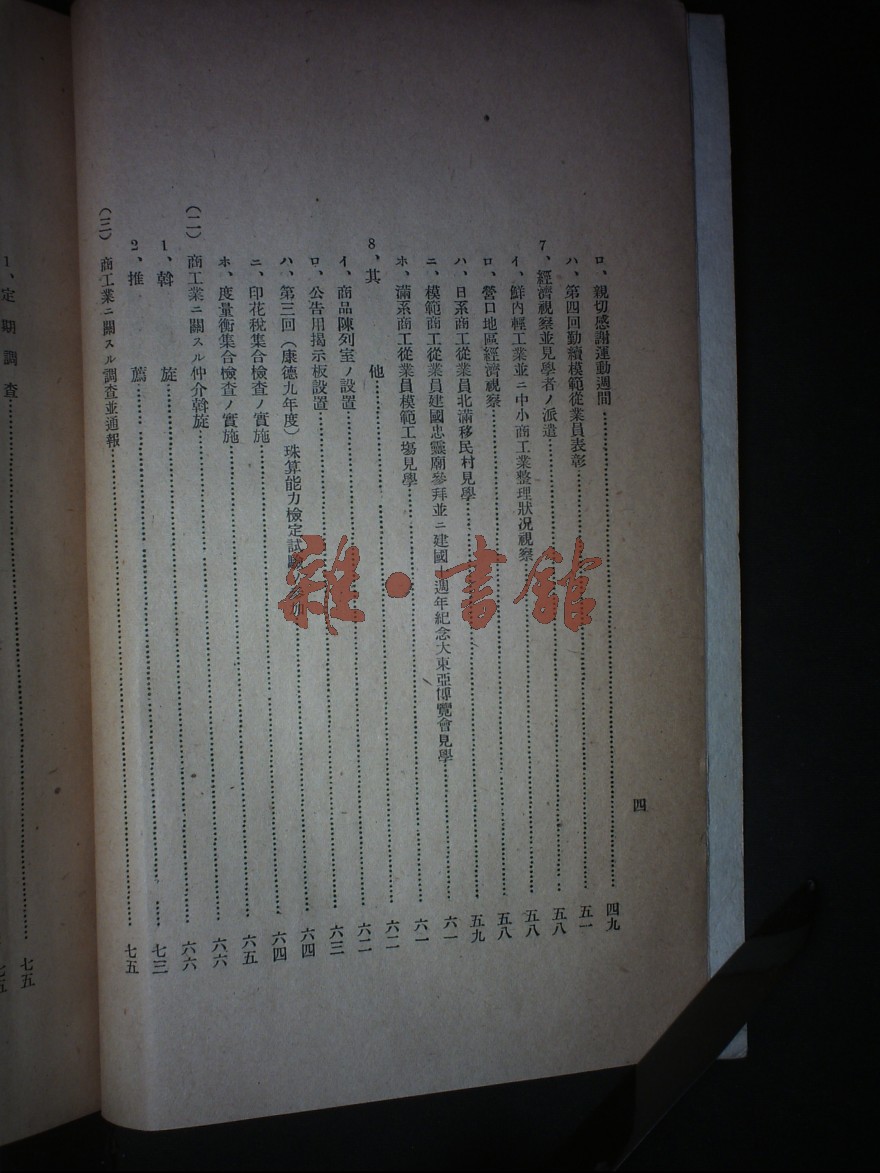 四
ロ、親切感謝運動週間……四九
ハ、第四回勤續模範從業員表彰……五一
7、經濟視察並見學者ノ派遣……五八
イ、鮮內輕工業並ニ中小商工業整理狀況視察……五八
ロ、營口地區經濟視察……五八
ハ、日系商工從業員北滿移民村見學……五九
ニ、模範商工從業員建國忠靈廟參拜並ニ建國十週年紀念大東亞博覽會見學……六一
ホ、滿系商工從業員模範工場見學……六一
8、其他……六二
イ、商品陳列室ノ設置……六二
ロ、公告用揭示板設置……六三
ハ、第三回（康德九年度）珠算能力檢定試驗
加……六四
ニ、印花稅集合檢查ノ實施……六四
ホ、度量衡集合檢查ノ實施……六五
(二) 商工業ニ關スル仲介斡旋……六六
1、斡旋……六六
2、推薦……七三
(三) 商工業ニ關スル調查並通報……七五
1、定期調查……七五
七五
雜·書館